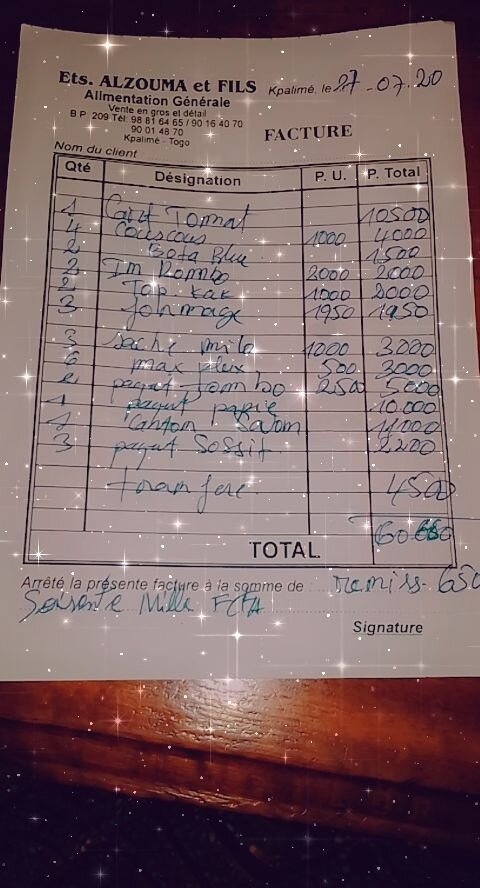 Ets. ALZOUMA et FILS
Alimentation Générale
Vente en gros et détail
B P 209 Tél: 98 81 64 65 / 90 16 40 70
90 01 48 70
Kpalimé - Togo
Kpalimé, le 27-07.20
FACTURE
Nom du client
Qté Désignation P. U. P. Total
1 Tomat 10500
4 Couscous 1000 4000
2 Beta Blue 1500
Rombo 2000 2000
2 Top 1000 2000
3 1950 1950
3 sache milo 1000 3000
6 max plux 500 3000
paquet Jombo 250 5000
1 paquet papie 10.000
1 Canton Savom 11000
3 paquet Sossit 2200
4500
TOTAL 60.650
Arrêté la présente facture à la somme de : remiss - 650
Mille FCFA
Signature